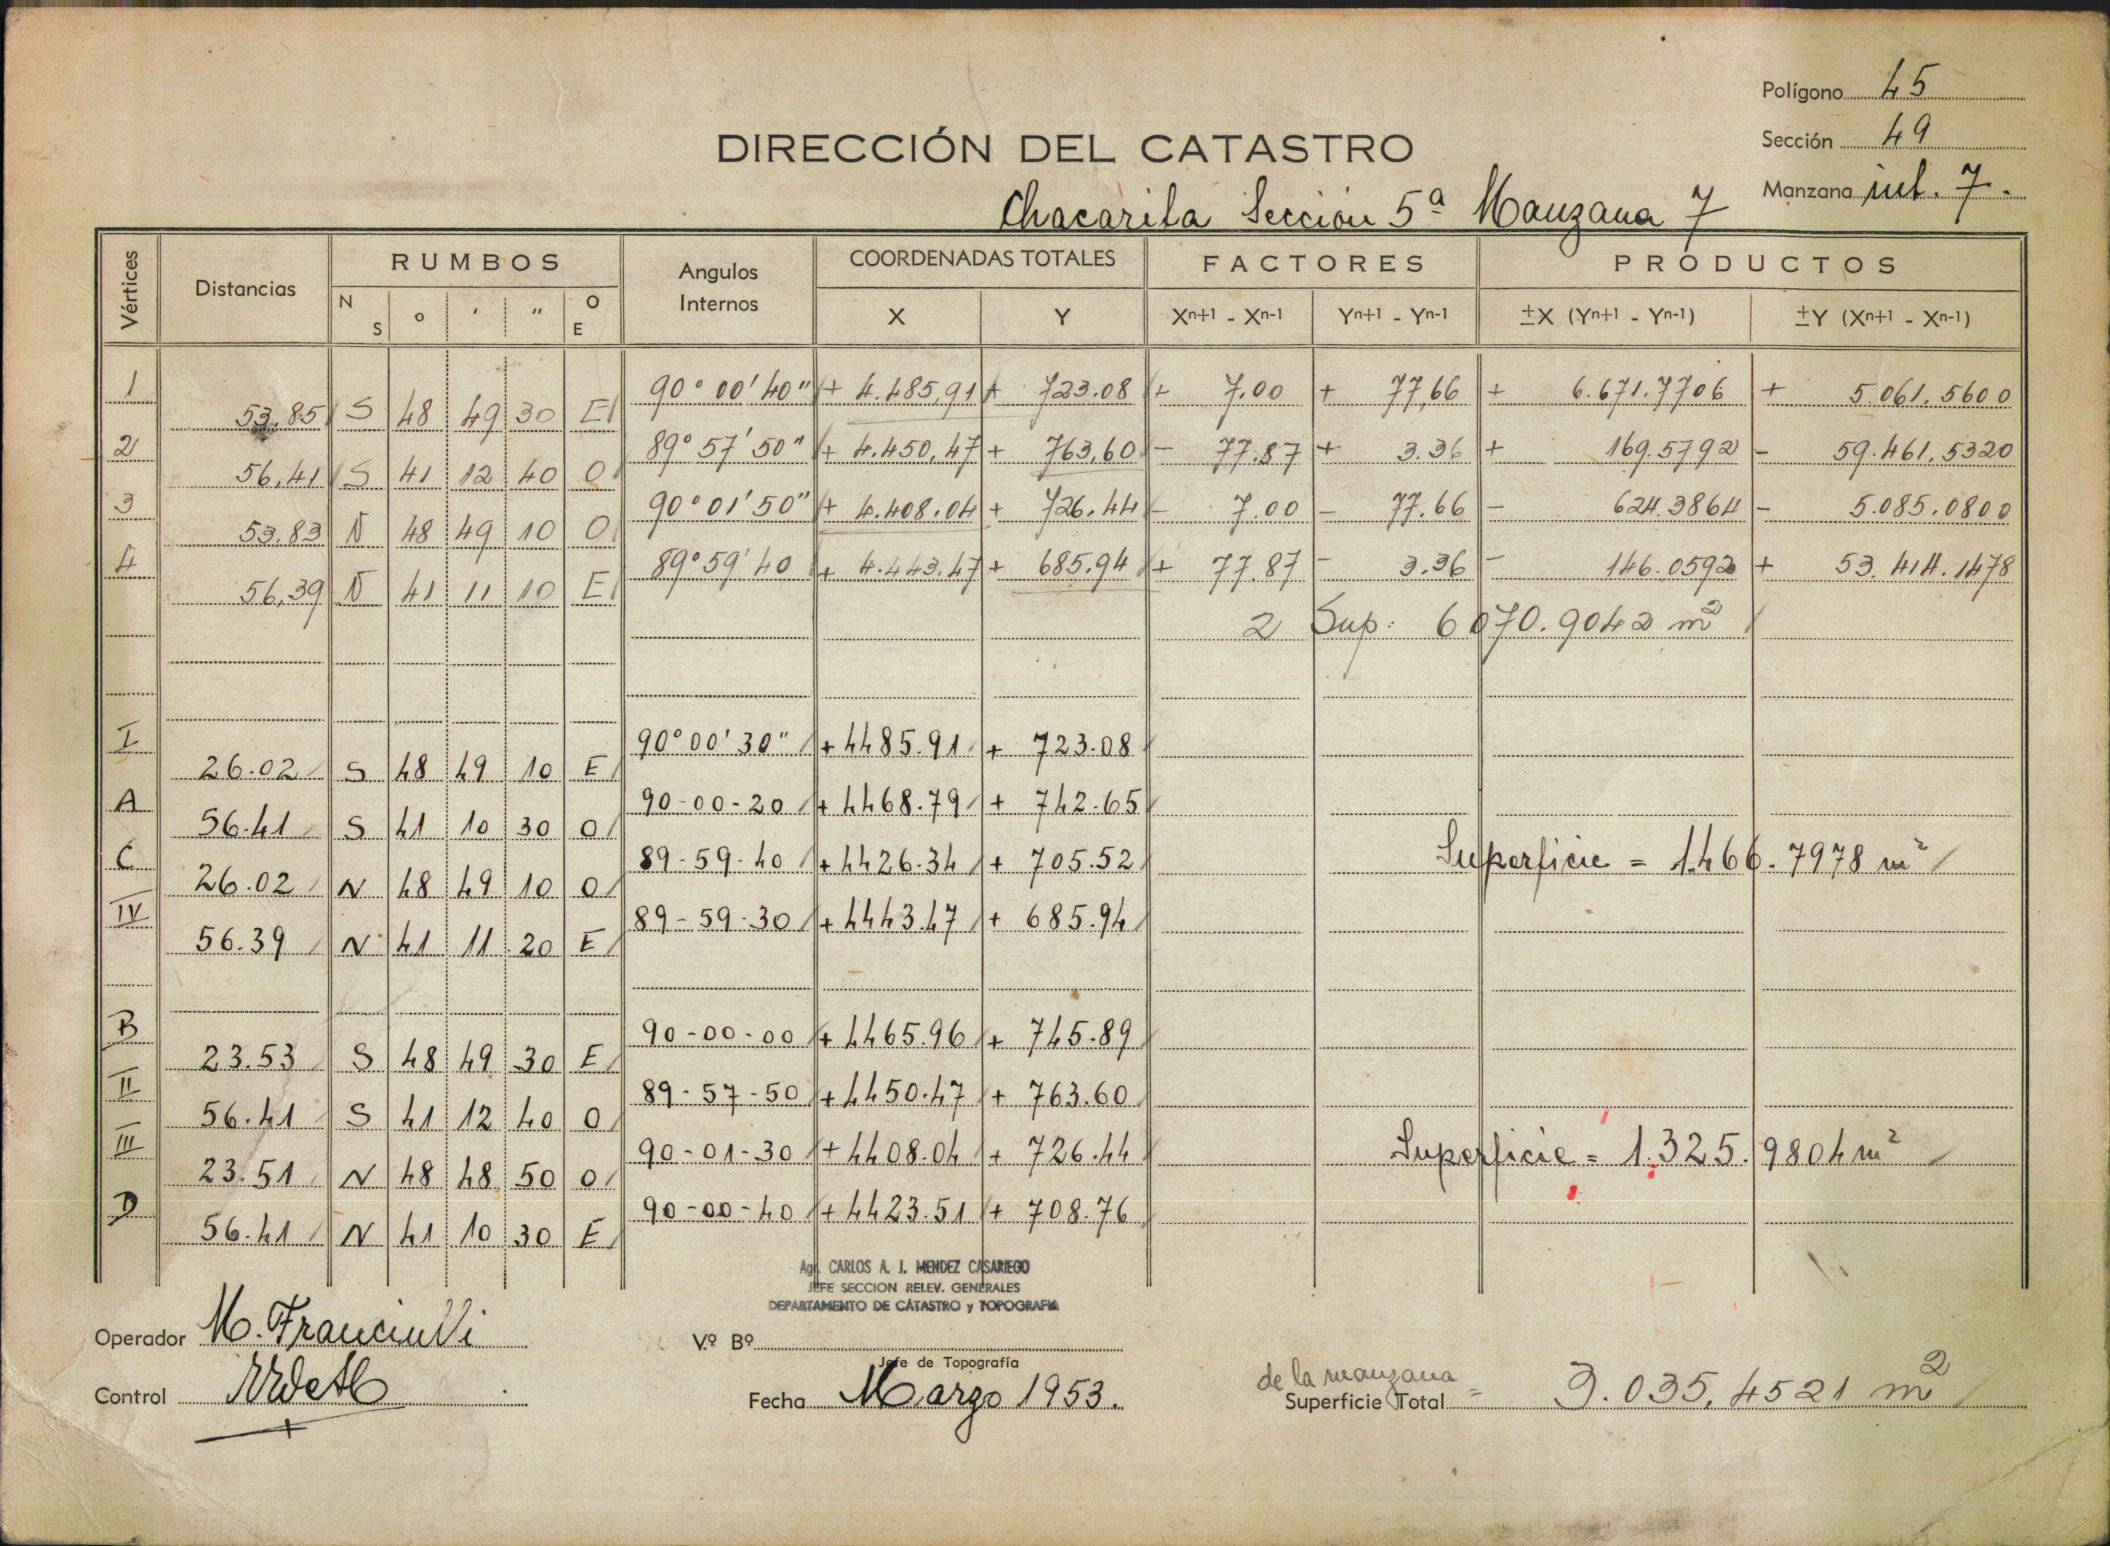 Polígono 45
DIRECCIÓN DEL CATASTRO
Sección 49
Manzana int. 7.
Chacarita Sección 5ª Manzana 7
Vértices Distancias RUMBOS Angulos Internos COORDENADAS TOTALES FACTORES PRODUCTOS
N S ° ' " O E X Y Xn+1 - Xn-1 Yn+1 - Yn-1 ±X (Yn+1 - Yn-1) ±Y (Xn+1 - Xn-1)
1 90° 00' 40" + 4.485,91 + 723.08 + 7.00 + 77,66 + 6.671.7706 + 5.061.5600
53,85 S 48 49 30 E
2 89° 57' 50" + 4.450,47 + 763,60 - 77.87 + 3.36 + 169.5792 - 59.461.5320
56,41 S 41 12 40 O
3 90° 01' 50" + 4.408.04 + 726.44 - 7.00 - 77.66 - 624.3864 - 5.085.0800
53.83 N 48 49 10 O
4 89° 59' 40 + 4.443.47 + 685.94 + 77.87 - 3.36 - 146.0592 + 53.414.1478
56,39 N 41 11 10 E
2 Sup: 6070.9042 m²
I 90° 00' 30" + 4485.91 + 723.08
26.02 S 48 49 10 E
A 90-00-20 + 4468.79 + 742.65
56.41 S 41 10 30 O
C 89-59-40 + 4426.34 + 705.52 Superficie = 1.466.7978 m²
26.02 N 48 49 10 O
IV 89-59-30 + 4443.47 + 685.94
56.39 N 41 11 20 E
B 90-00-00 + 4465.96 + 745.89
23.53 S 48 49 30 E
II 89-57-50 + 4450.47 + 763.60
56.41 S 41 12 40 O
III 90-01-30 + 4408.04 + 726.44 Superficie = 1.325.9804 m²
23.51 N 48 48 50 O
D 90-00-40 + 4423.51 + 708.76
56.41 N 41 10 30 E
Agr. CARLOS A. J. MENDEZ CASARIEGO
JEFE SECCION RELEV. GENERALES
DEPARTAMENTO DE CATASTRO y TOPOGRAFIA
Operador M.
Vº Bº
Jefe de Topografía
Control
Fecha Marzo 1953.
de la manzana
Superficie Total = 3.035,4521 m²